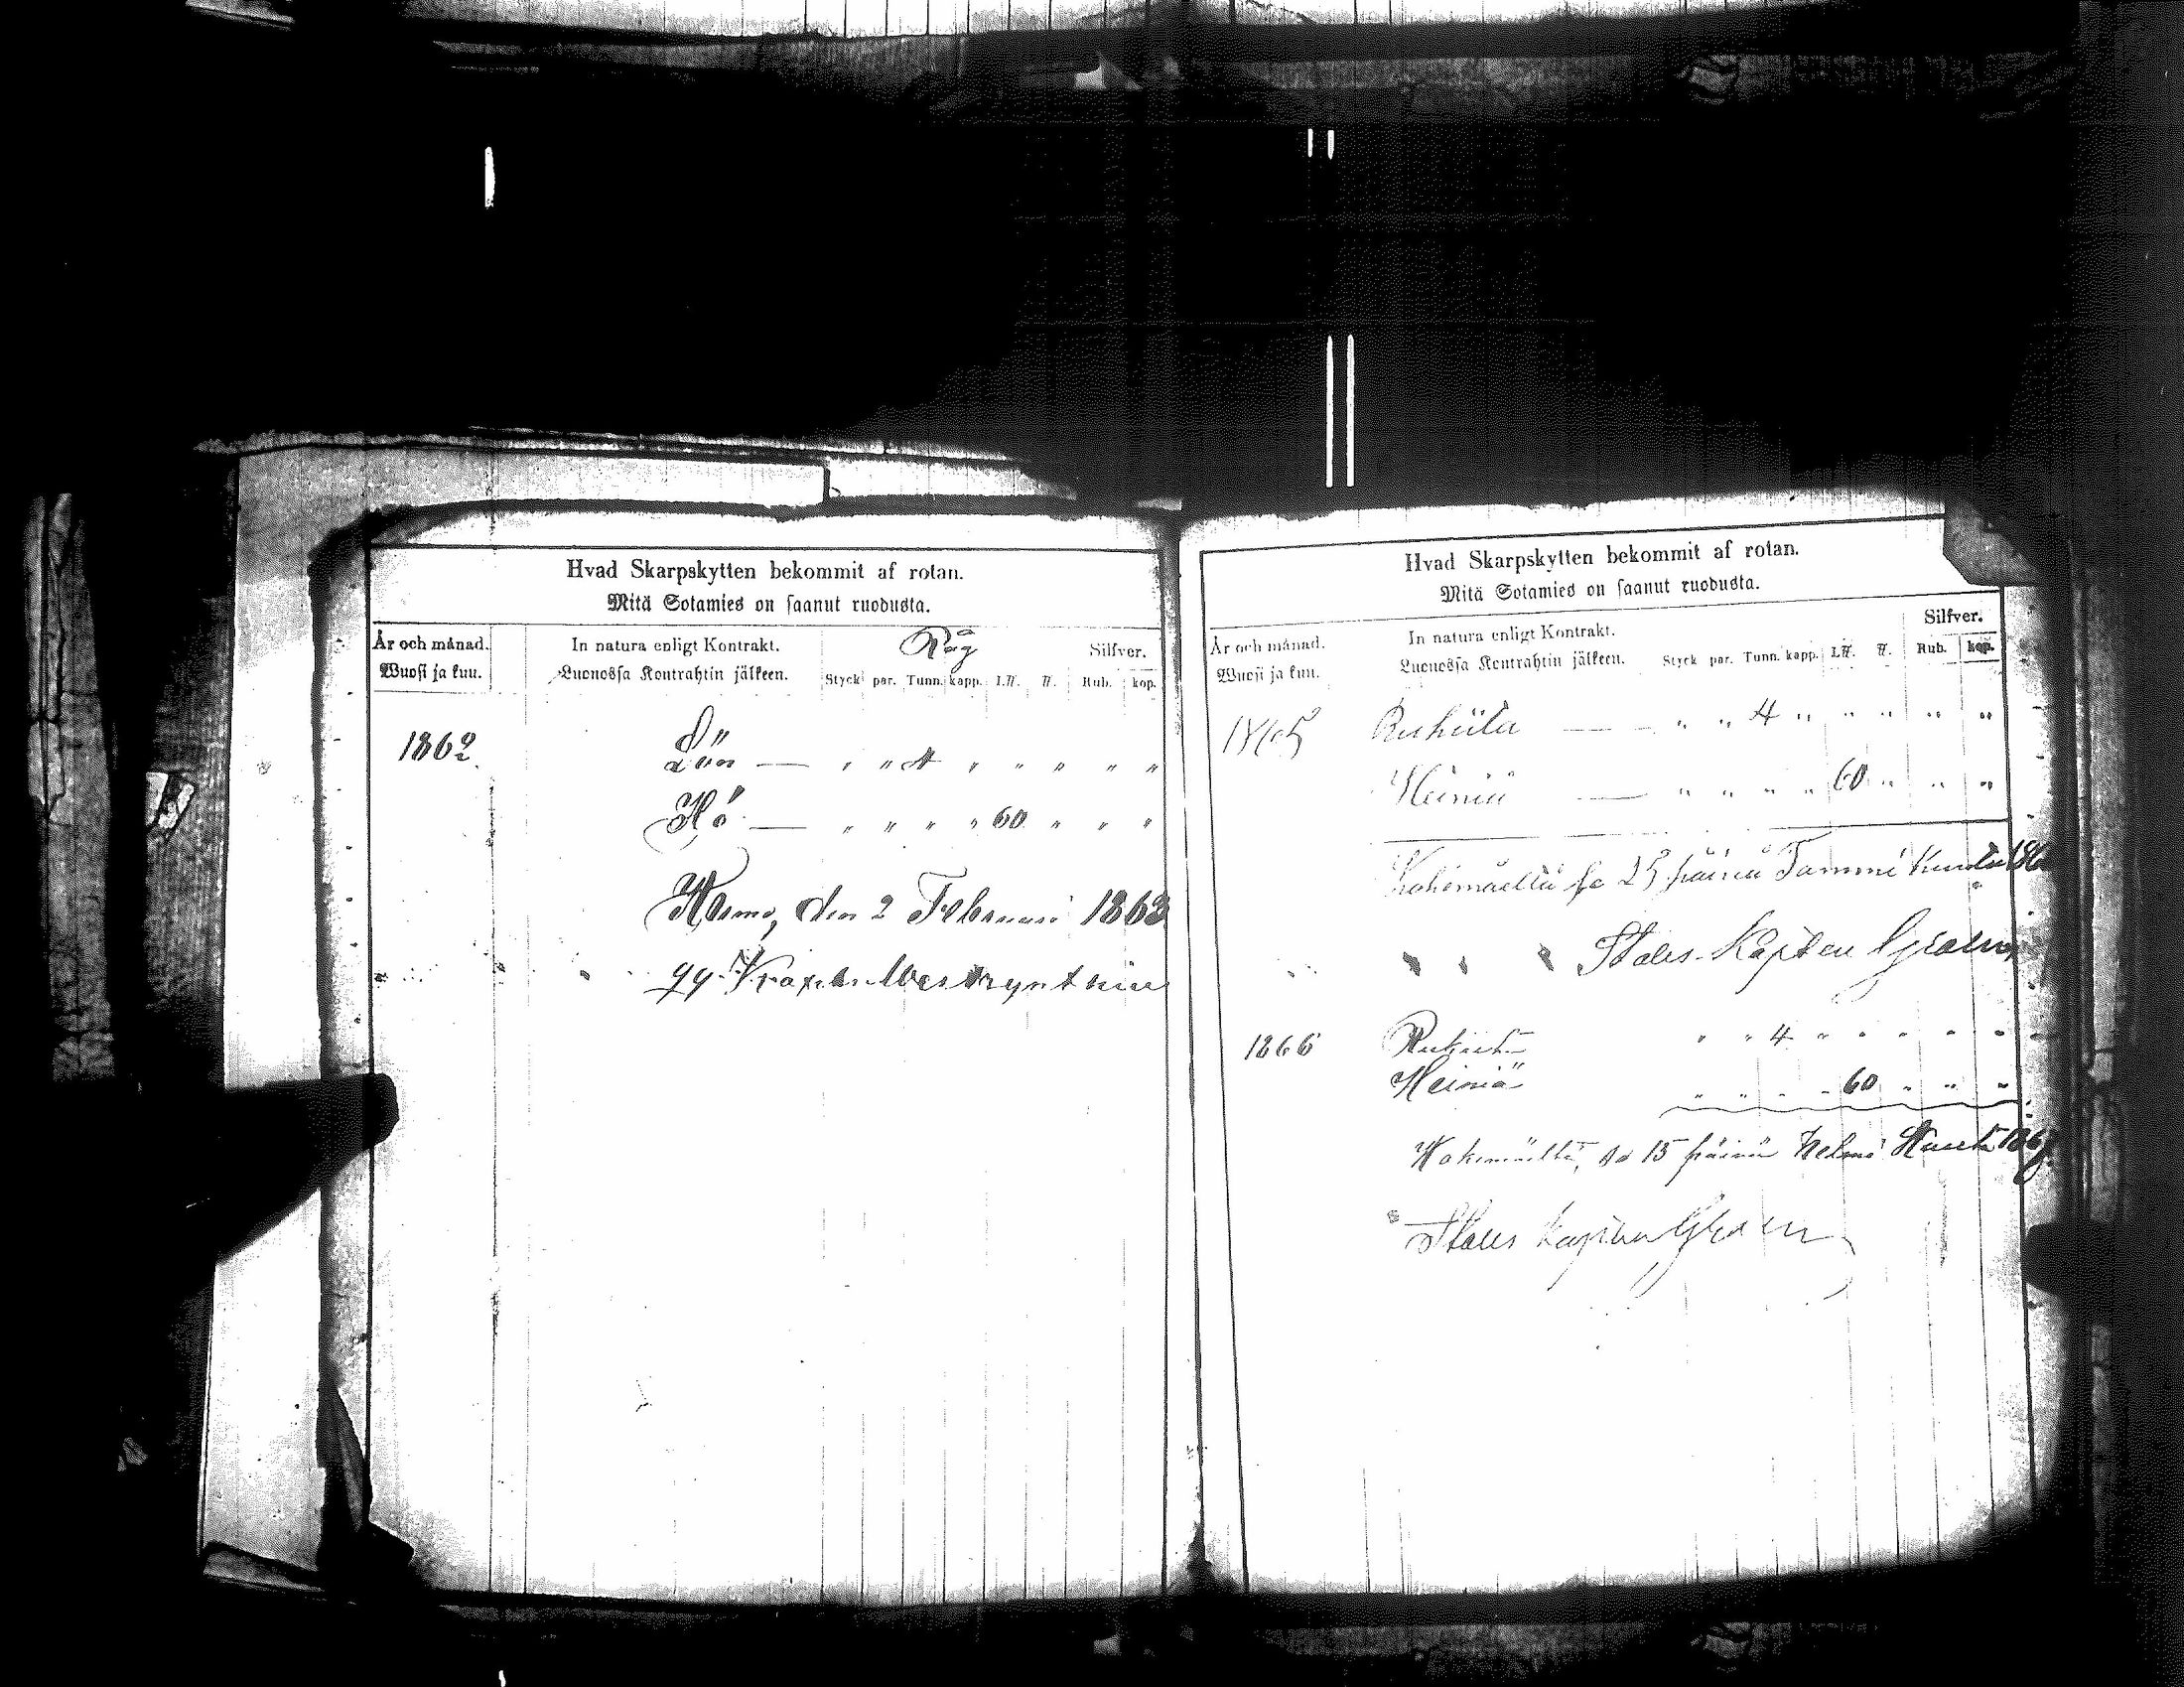 Hvad Skarpskytten bekommit af rotan.
Mitä Sotamies on saanut ruodusta.
År och månad.
Wuosi ja kuu.
In natura enligt Kontrakt.
Luonossa Kontrahtin jälkeen.
Råg
Silfver.
Styck par. Tunn. kapp. L℔. ℔. Rub. kop.
1862. Lön — " " 4 " " " " "
Hö — " " " " 60 " " "
den 2 Februari 1863
Hvad Skarpskytten bekommit af rotan.
Mitä Sotamies on saanut ruodusta.
År och månad.
Wuosi ja kuu.
In natura enligt Kontrakt.
Luonossa Kontrahtin jälkeen.
Silfver.
Styck par. Tunn. kapp. L℔. ℔. Rub. kop.
1865 Rukiita — " " 4 " " " " "
Heiniä — " " " " 60 " " "
Kokemäellä se 25 päivä Tammi Kuuta
Stabs-Kapten Gram
1866 Rukiita " " 4 " " " " "
Heiniä " " " " 60 " " "
Kokemäellä, se 15 päivä Helmi Kuuta 1867
Stabs Kapten Gram